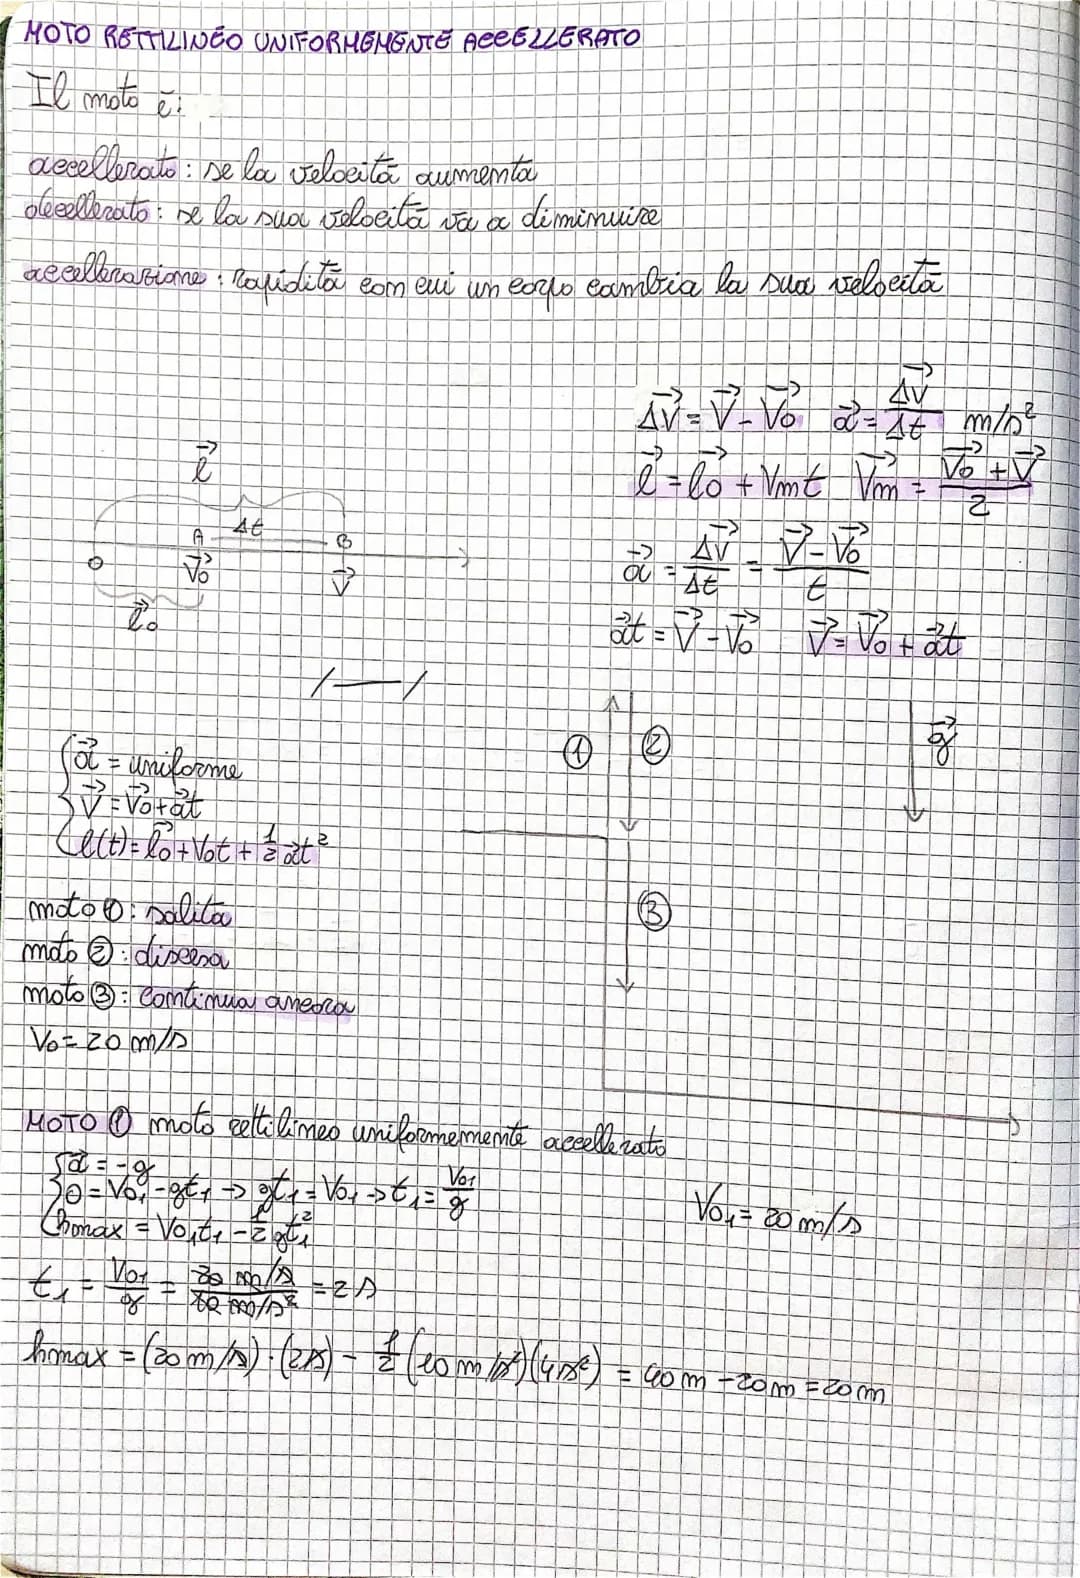 MOTO RETTILINEO UNIFORMEMENTE ACCELLERATO
Il moto è:
accellerato: se la velocità aumenta
decellerato: se la sua velocità va a diminuire
accellerazione: rapidità con cui un corpo cambia la sua velocità
Δv⃗ = V⃗ - V⃗₀ a⃗ = Δv⃗/Δt m/s²
l⃗ = l⃗₀ + Vmt V⃗m = (V⃗₀ + V⃗)/2
l⃗
A Δt B
O V⃗₀ V⃗
l⃗₀
a⃗ = Δv⃗/Δt = (V⃗ - V⃗₀)/t
a⃗t = V⃗ - V⃗₀ V⃗ = V⃗₀ + a⃗t
① ② g⃗
③
{a⃗ = uniforme
V⃗ = V⃗₀ + a⃗t
l(t) = l⃗₀ + V₀t + 1/2 a⃗t²
moto ①: salita
moto ②: discesa
moto ③: continua ancora
V₀ = 20 m/s
MOTO ① moto rettilineo uniformemente accellerato
{a⃗ = -g
0 = V₀₁ - gt₁ → gt₁ = V₀₁ → t₁ = V₀₁/g
hmax = V₀₁t₁ - 1/2 gt₁²
V₀₁ = 20 m/s
t₁ = V₀₁/g = 20 m/s / 10 m/s² = 2 s
hmax = (20 m/s) · (2s) - 1/2 (10 m/s²)(4s²) = 40 m - 20 m = 20 m